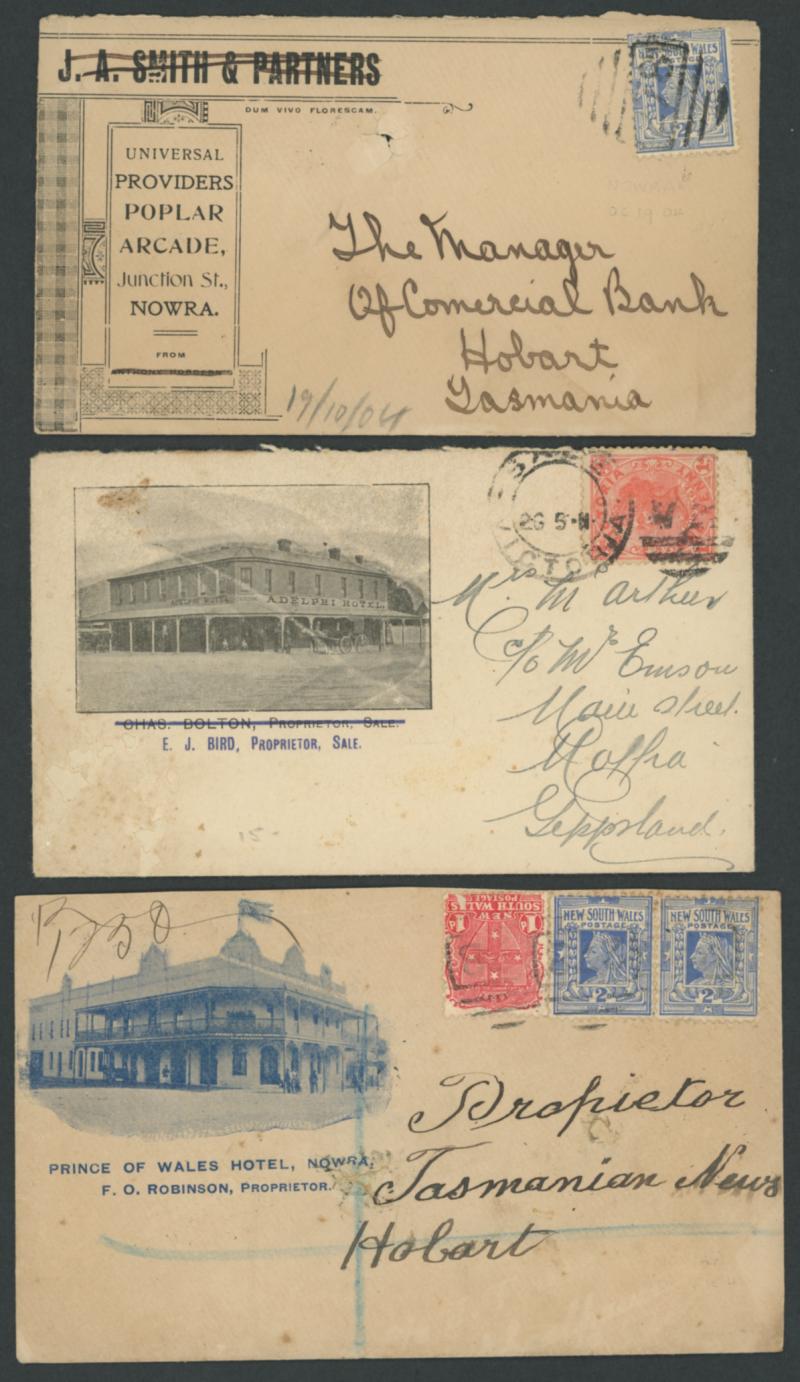 J. A. SMITH & PARTNERS
DUM VIVO FLORESCAM.
UNIVERSAL
PROVIDERS
POPLAR
ARCADE,
Junction St.,
NOWRA.
FROM
ANTHONY HORDERN
NEW SOUTH WALES
2
NOWRA
OC 19 04
The Manager
Of Comercial Bank
Hobart
Tasmania
19/10/04
ADELPHI HOTEL.
CHAS. BOLTON, PROPRIETOR, SALE.
E. J. BIRD, PROPRIETOR, SALE.
26 5
VICTORIA
Mrs M arthur
C/o Mr Emson
Main street
Moffra
Geppsland.
15-
R 1258
PRINCE OF WALES HOTEL, NOWRA.
F. O. ROBINSON, PROPRIETOR.
NEW
SOUTH WALES
POSTAGE
1D 1D
NEW SOUTH WALES
POSTAGE
2D
NEW SOUTH WALES
POSTAGE
2D
Propietor
Tasmanian News
Hobart